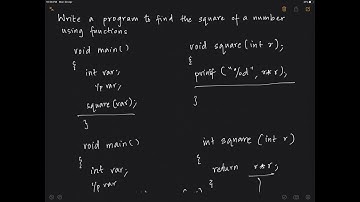 Write a program to find the square of a number
using functions
void main()
{
int var;
i/p var;
square(var);
}
void square(int r);
{
printf("%d", r*r);
}
void main()
{
int var;
i/p var
int square (int r)
{
return r*r;
}